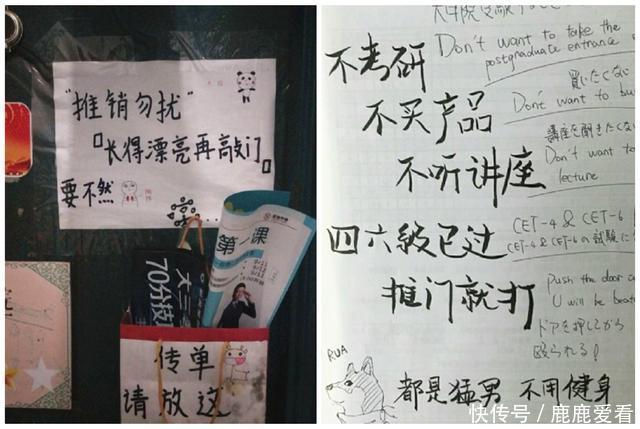 "推销勿扰"
『长得漂亮再敲门』
要不然
...
第一课
大三
70分技
传单
请放这
不考研
Don't want to take the
postgraduate entrance
買いたくない
不买产品
Don't want to bu
講座を聞きたくな
不听讲座
Don't want to
lecture
四六級已过
CET-4 & CET-6
CET-4 & CET-6の試験に
推门就打
Push the door a
U will be beat
ドアを押してから
殴られる!
RUA
都是猛男 不用健身
快传号/鹿鹿爱看